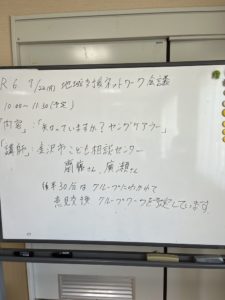 R6 7/22(月) 地域支援ネットワーク会議
10:00〜11:30(予定)
「内容」:「知っていますか?ヤングケアラー」
「講師」:金沢市こども相談センター
齋藤さん 廣瀬さん
後半30分は グループにわかれて
意見交換 グループワークを予定しています